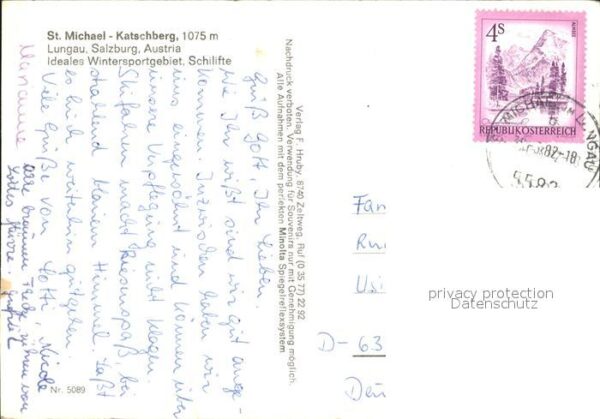 St. Michael - Katschberg, 1075 m
Lungau, Salzburg, Austria
Ideales Wintersportgebiet, Schilifte
Grüß Gott, Ihr Lieben.
Wie Ihr wißt sind wir gut ange-
kommen. Inzwischen haben wir
uns eingewöhnt und können über
unsere Verpflegung nicht klagen.
Skifahren macht Riesenspaß, bei
strahlend blauem Himmel. Laßt
es Euch weiterhin gutgehen.
Viele Grüße von Lotti, Nicole
Verlag F. Hruby, 8740 Zeltweg, Ruf (0 35 77) 22 92
Nachdruck verboten. Verwendung für Souvenirs nur mit Genehmigung möglich.
Alle Aufnahmen mit dem perfekten Minolta Spiegelreflexsystem
Nr. 5089
4S
ALMSEE
REPUBLIK ÖSTERREICH
ST. MICHAEL IM LUNGAU
82-18
5582
Fam
Usi
D-63
privacy protection
Datenschutz